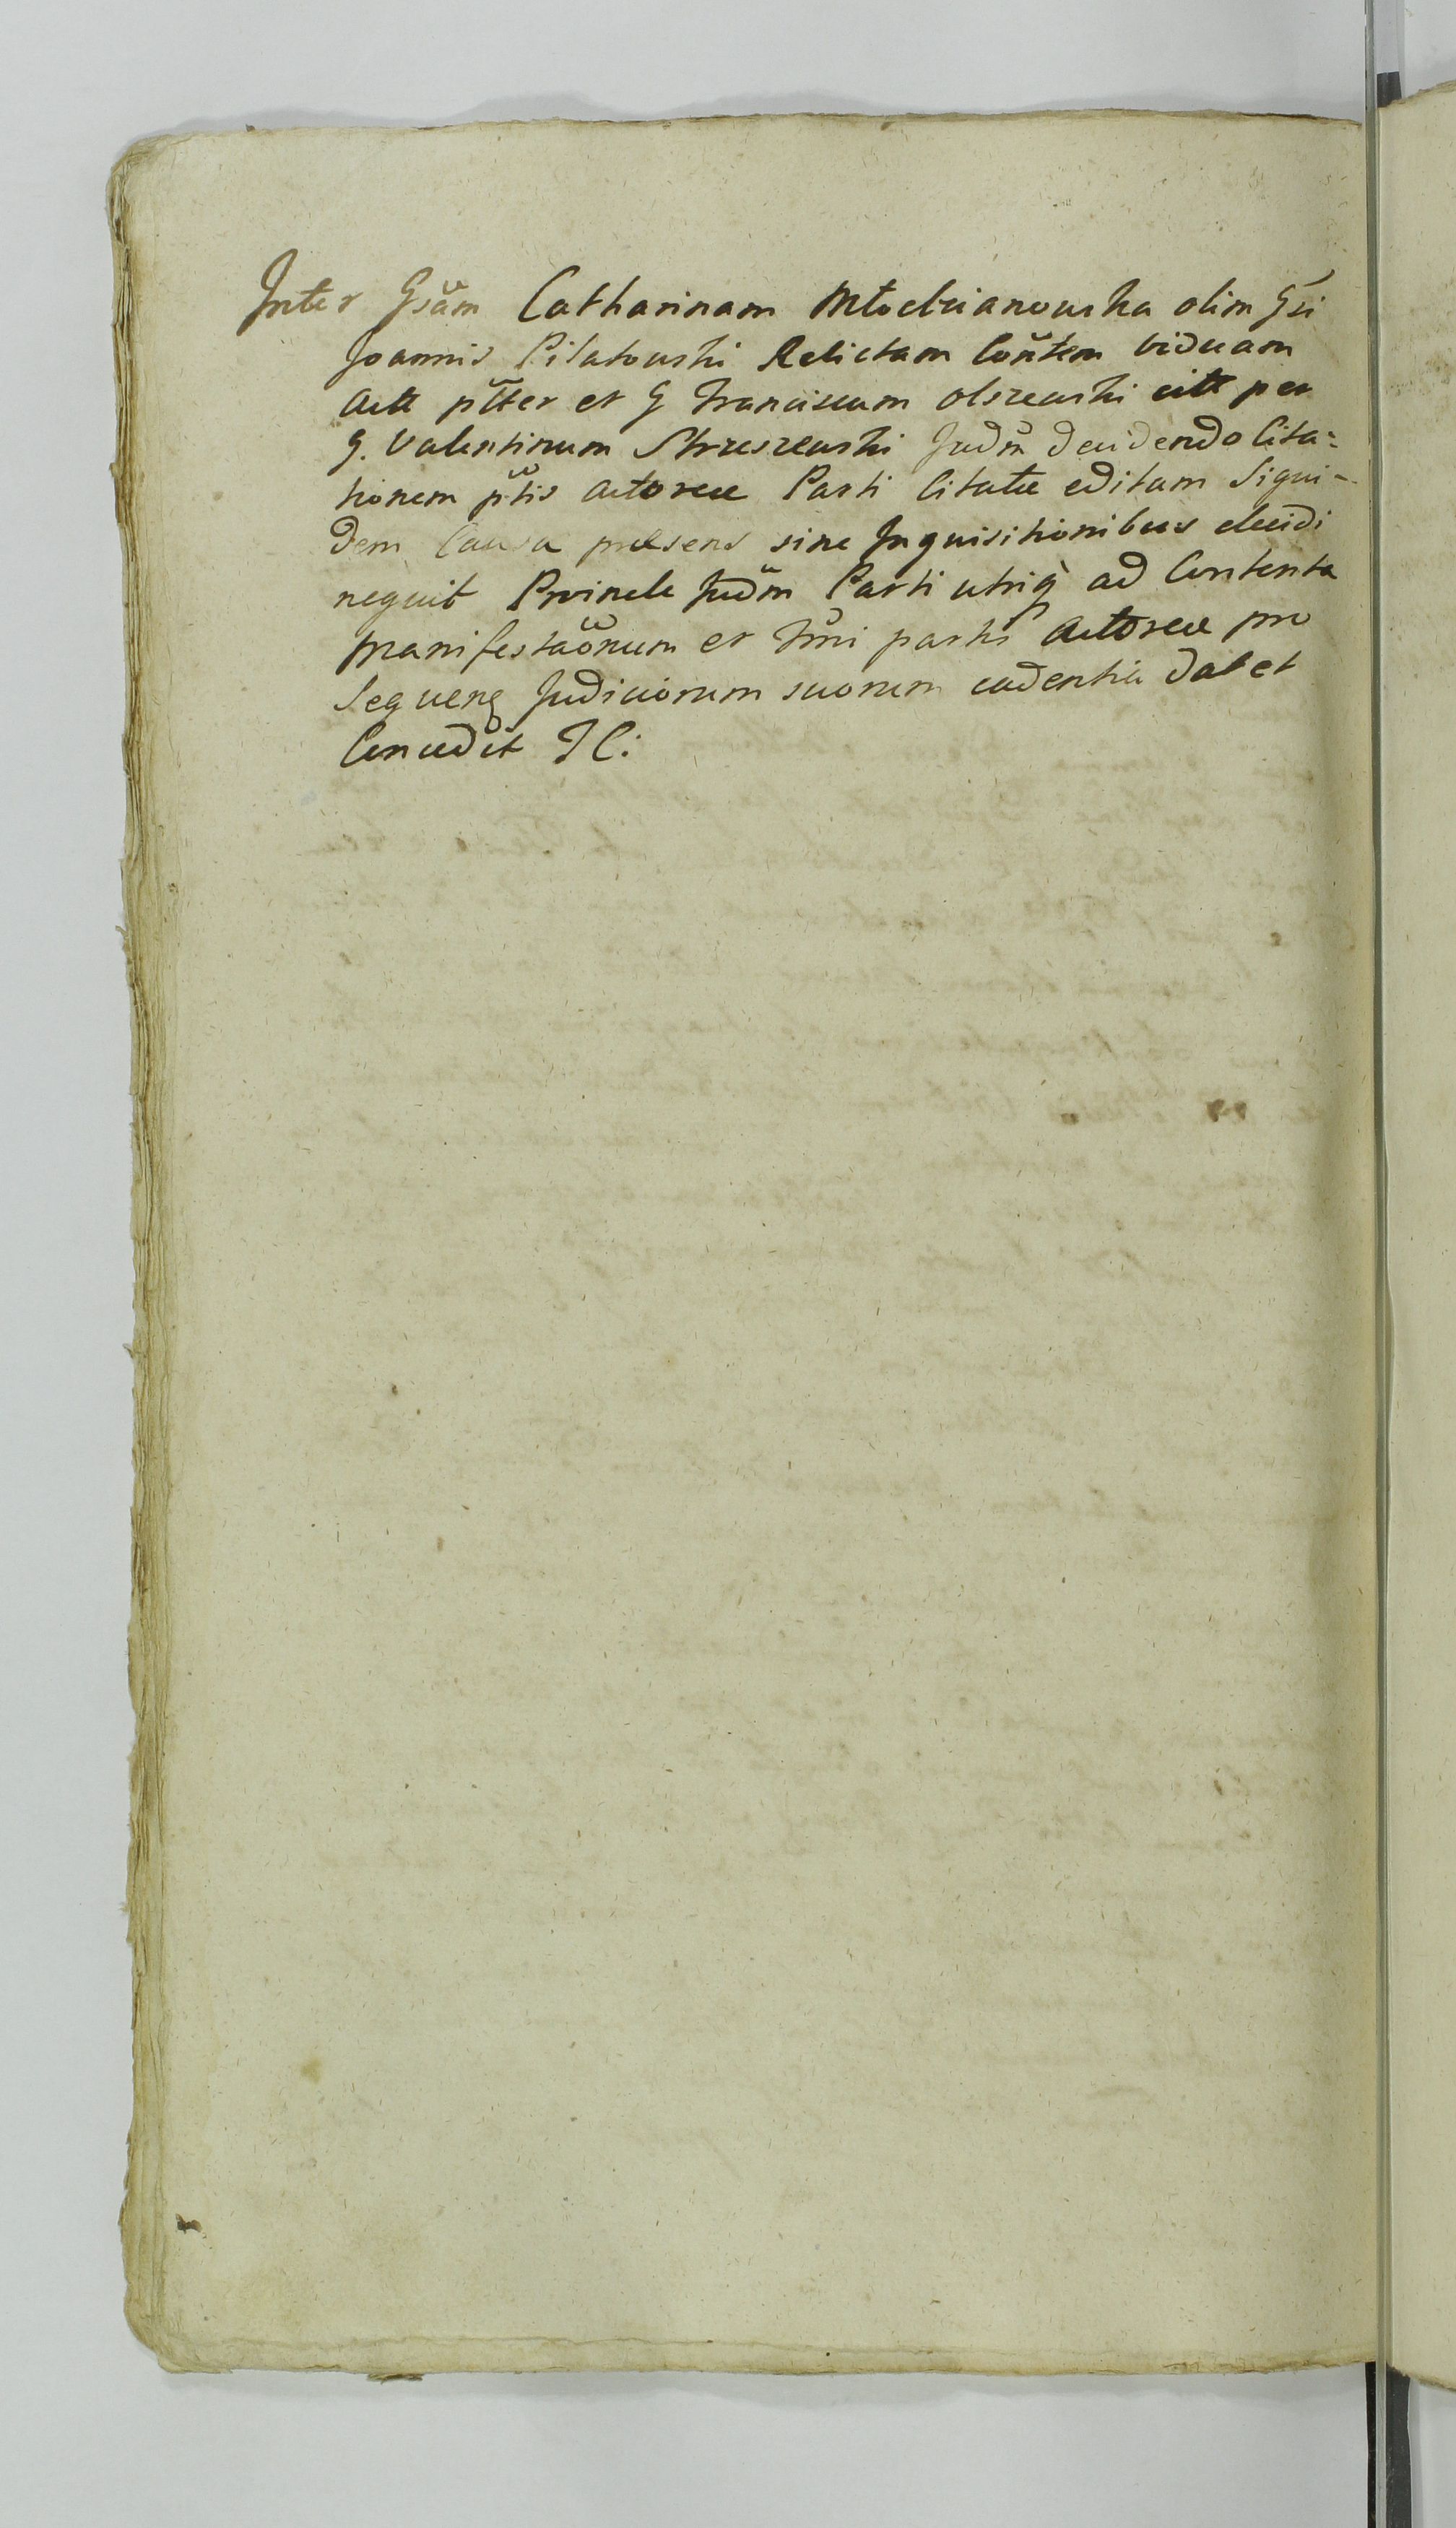 Inter Gsam Catharinam Młodzianowska olim Gsi
Joannis Pilatowski Relictam Contem Viduam
Actt ptter et G Franciscum Olszewski citt per
G. Valentinum Struszewski Judm decidendo Cita=
tionem ptis Actoreæ Parti Citatæ editam Siqui-
dem Causa præsens sine Inquisitionibus decidi
nequit Proinde Judm Parti utriq ad Contenta
Manifestaonum et parti Actoreæ pro
Sequenq Judiciorum suorum cadentia dat et
Concedit